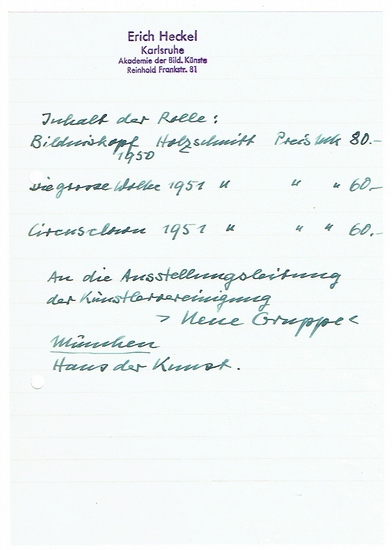 Erich Heckel
Karlsruhe
Akademie der Bild. Künste
Reinhold Frankstr. 81
Inhalt der Rolle:
Bildniskopf Holzschnitt Preis Mk 80.-
1950
die grosse Wolke 1951 " " " 60.-
Circusclown 1951 " " " 60.-
An die Ausstellungsleitung
der Künstlervereinigung
> Neue Gruppe <
München
Haus der Kunst.